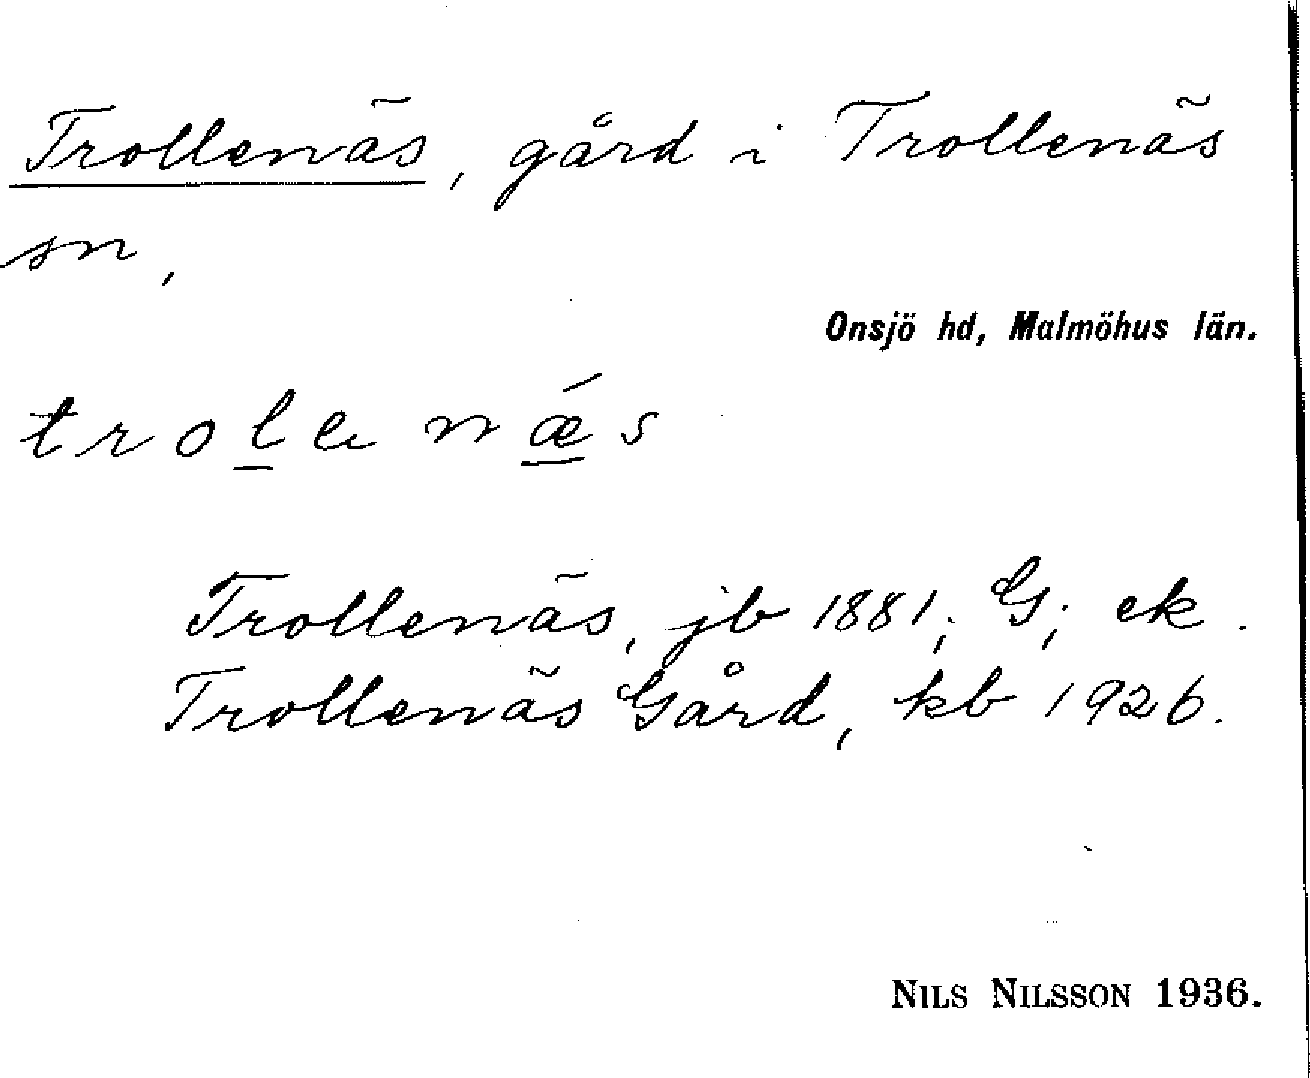 Trollenäs, gård i Trollenäs
sn,
Onsjö hd, Malmöhus län.
trolenǽs
Trollenäs, jb 1881; G; ek.
Trollenäs Gård, kb 1926.
NILS NILSSON 1936.